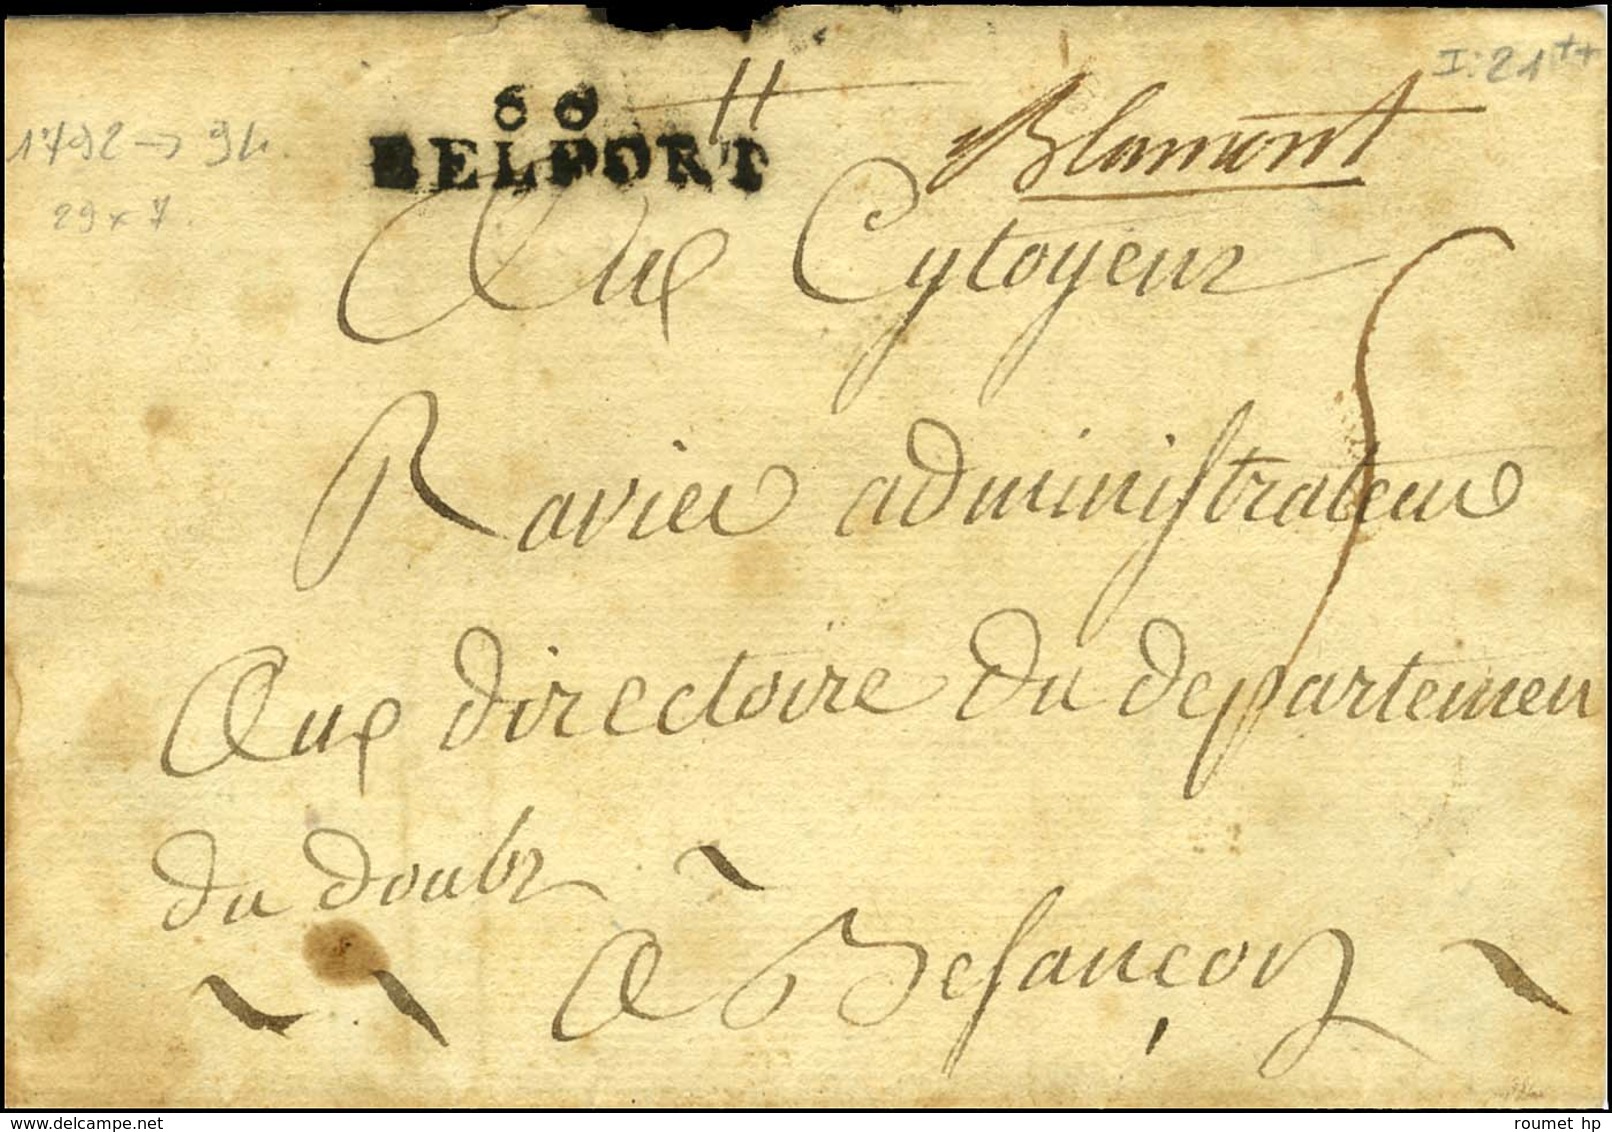 I: 21 ++
66
BELFORT
11
Blamont
1792 → 94.
29 x 7.
Aux Cytoyenz
5
Ravier administrateur
Aux directoire du departemen
du doubz
a Besançon
delcampe.net
roumet hp